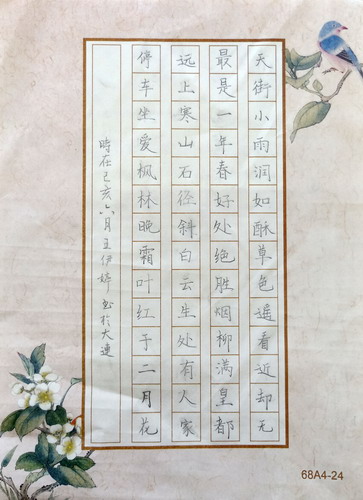 天街小雨润如酥草色遥看近却无
最是一年春好处绝胜烟柳满皇都
远上寒山石径斜白云生处有人家
停车坐爱枫林晚霜叶红于二月花
時在己亥六月王伊婷书於大連
68A4-24